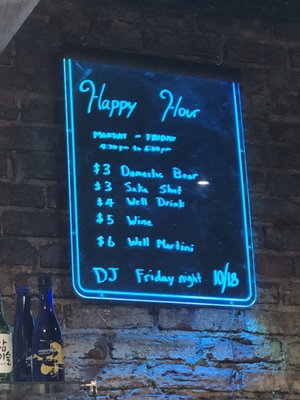 Happy Hour
MONDAY - FRIDAY
4:30 pm to 6:30 pm
$3 Domestic Beer
$3 Sake Shot
$4 Well Drink
$5 Wine
$6 Well Martini
DJ Friday night 10/18